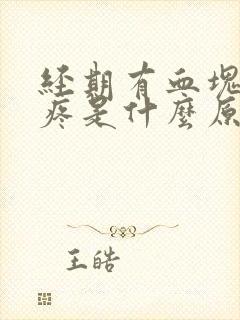 經期有血塊
疼是什麼原
王皓